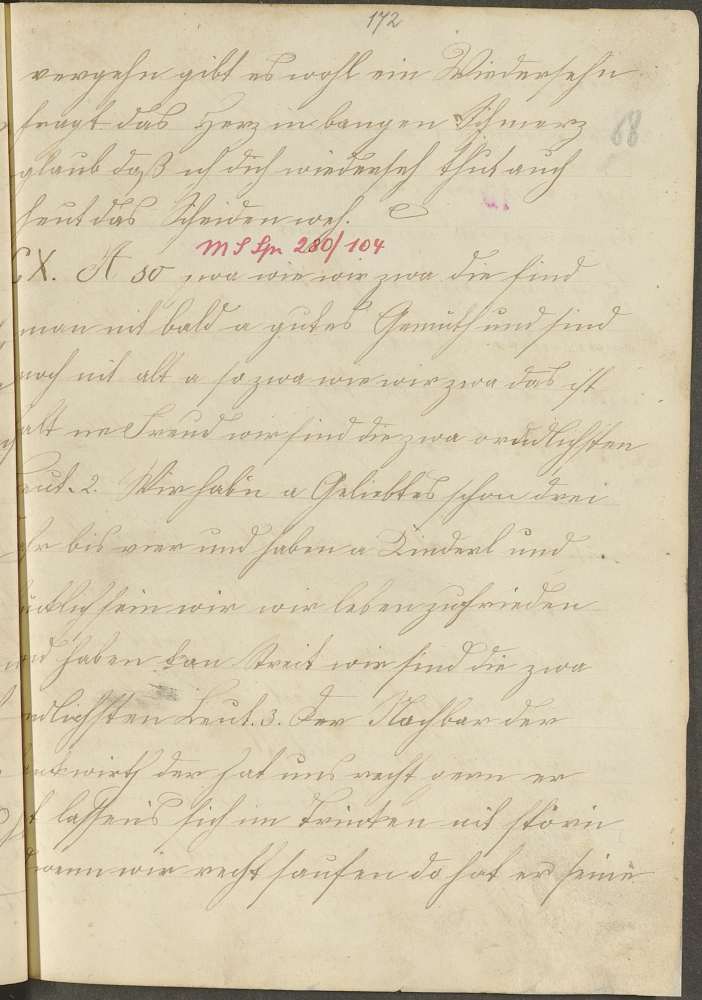 172
vergehn gibt es wohl ein Wiedersehn
fragt das Herz in bangen Schmerz
68
glaub daß ich dich wiederseh thut auch
heut das Scheiden weh.
MS Sp 280/104
CX. A so zwa wie wir zwa die find
man nit bald a gutes Gemüth und sind
noch nit alt a so zwa wie wir zwa das ist
halt ne Freud wir sind die zwa ordndlichsten
Leut. 2. Wir habn a Geliebtes schon drei
Jahr bis vier und haben a Kinderl und
glücklich sein wir wir leben zufrieden
und haben kan Streit wir sind die zwa
ordndlichsten Leut. 3. Der Nachbar der
wirth der hat uns recht gern er
lassens sich im Trinken nit störn
wenn wir recht saufen da hat er seine